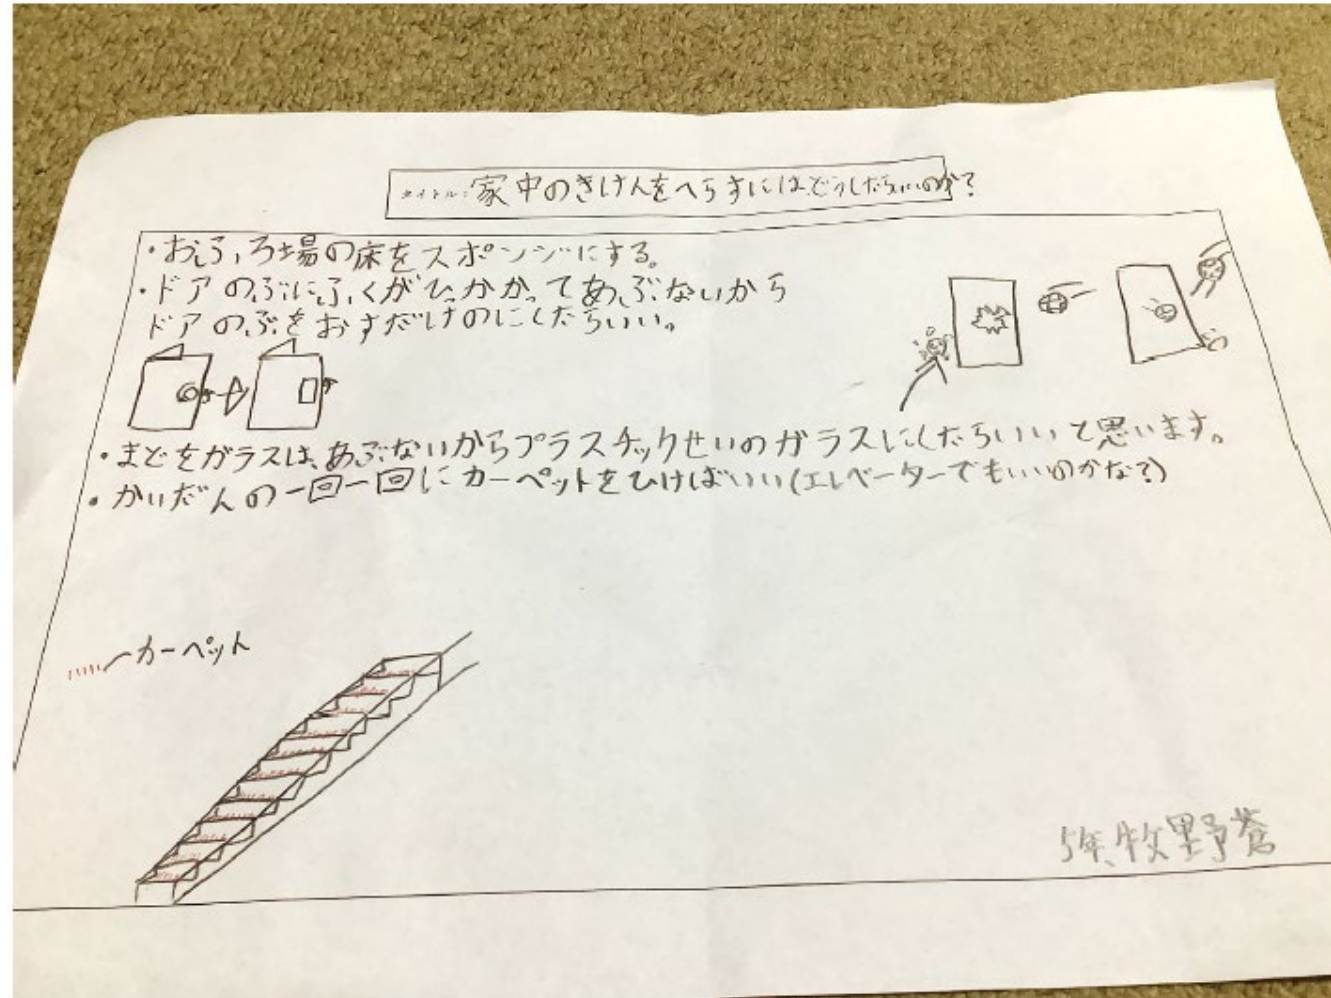 タイトル:家中のきけんをへらすにはどうしたらいいのか?
・おふろ場の床をスポンジにする。
・ドアのぶにふくがひっかかってあぶないから
ドアのぶをおすだけのにしたらいい。
・まどをガラスは、あぶないからプラスチックせいのガラスにしたらいいと思います。
・かいだんの一回一回にカーペットをひけばいい(エレベーターでもいいのかな?)
カーペット
5年、牧野蒼